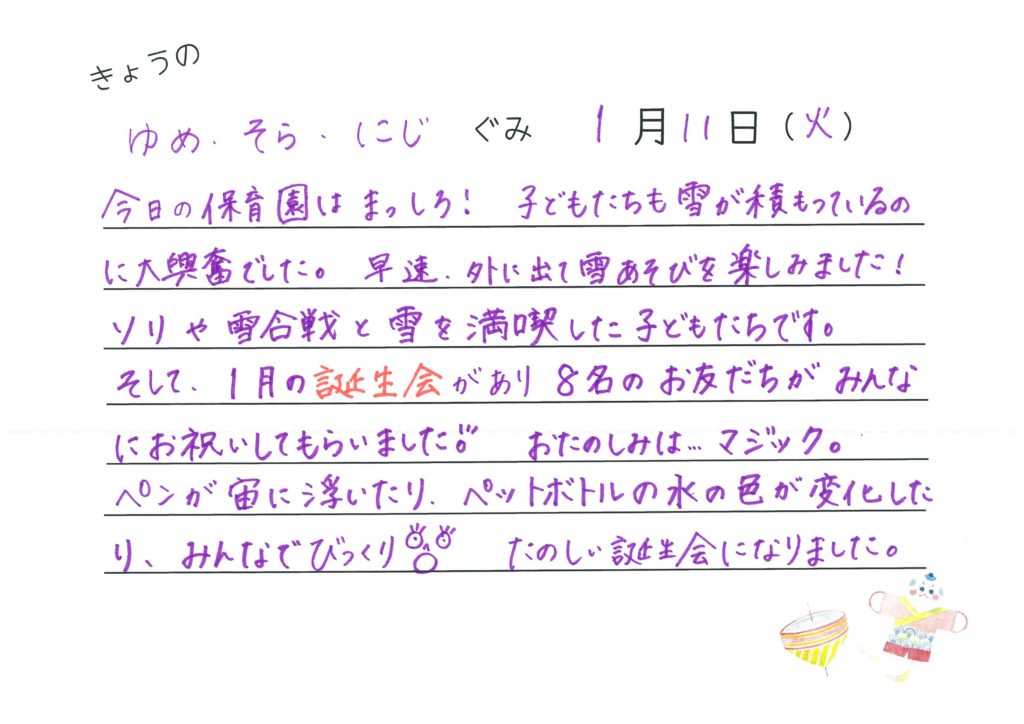 きょうの
ゆめ・そら・にじ ぐみ 1月11日(火)
今日の保育園はまっしろ! 子どもたちも雪が積もっているの
に大興奮でした。 早速、外に出て雪あそびを楽しみました!
ソリや雪合戦と雪を満喫した子どもたちです。
そして、1月の誕生会があり8名のお友だちがみんな
にお祝いしてもらいました!! おたのしみは…マジック。
ペンが宙に浮いたり、ペットボトルの水の色が変化した
り、みんなでびっくり たのしい誕生会になりました。